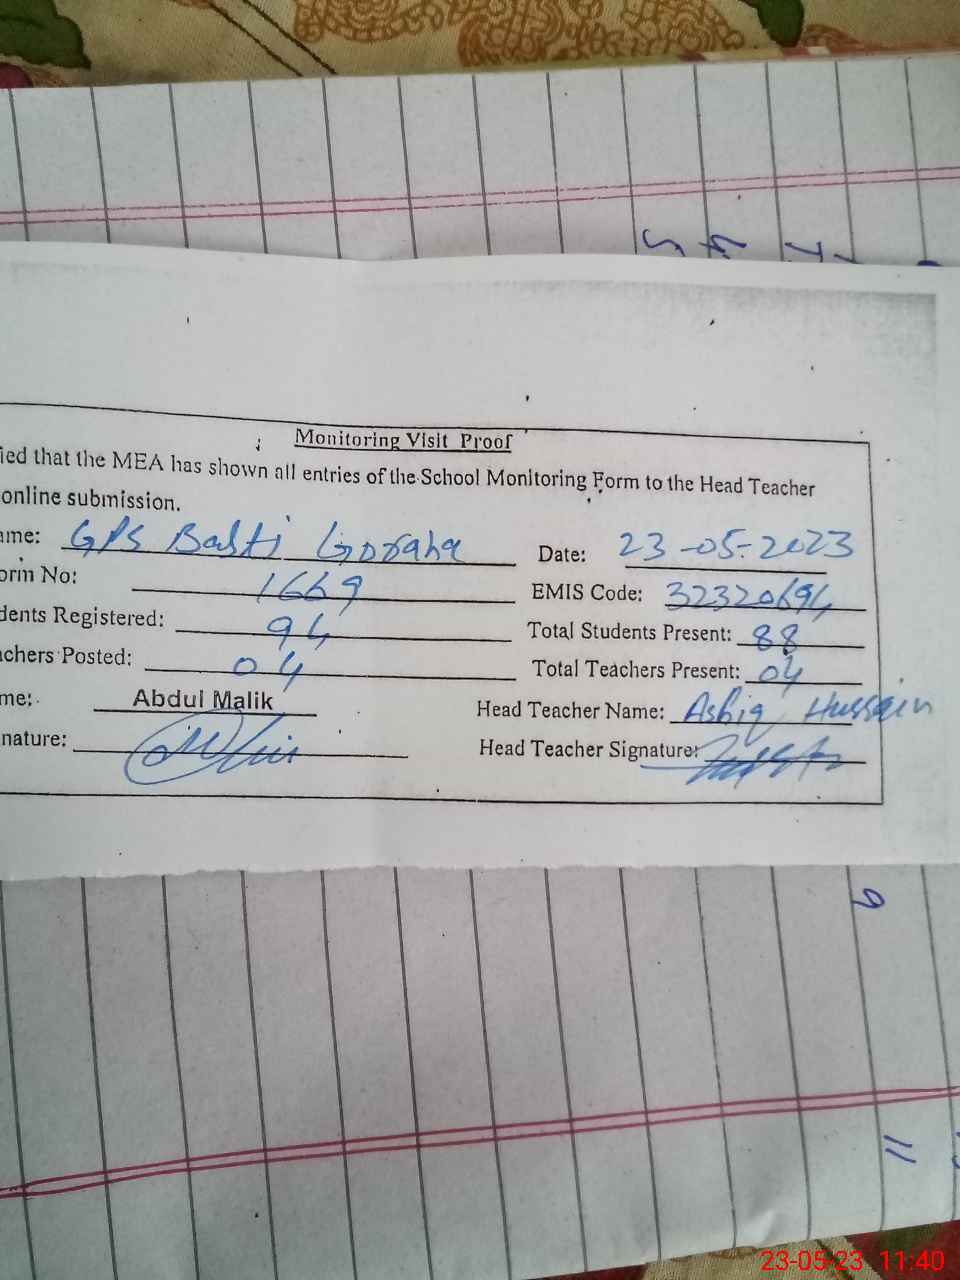 Monitoring Visit Proof
ied that the MEA has shown all entries of the School Monitoring Form to the Head Teacher
online submission.
ame: GPS Basti Goraha Date: 23-05-2023
orm No: 1669 EMIS Code: 32320694
dents Registered: 94 Total Students Present: 88
achers Posted: 04 Total Teachers Present: 04
me: Abdul Malik Head Teacher Name: Ashiq Hussain
nature: Head Teacher Signature:
9
11
23-05-23 11:40